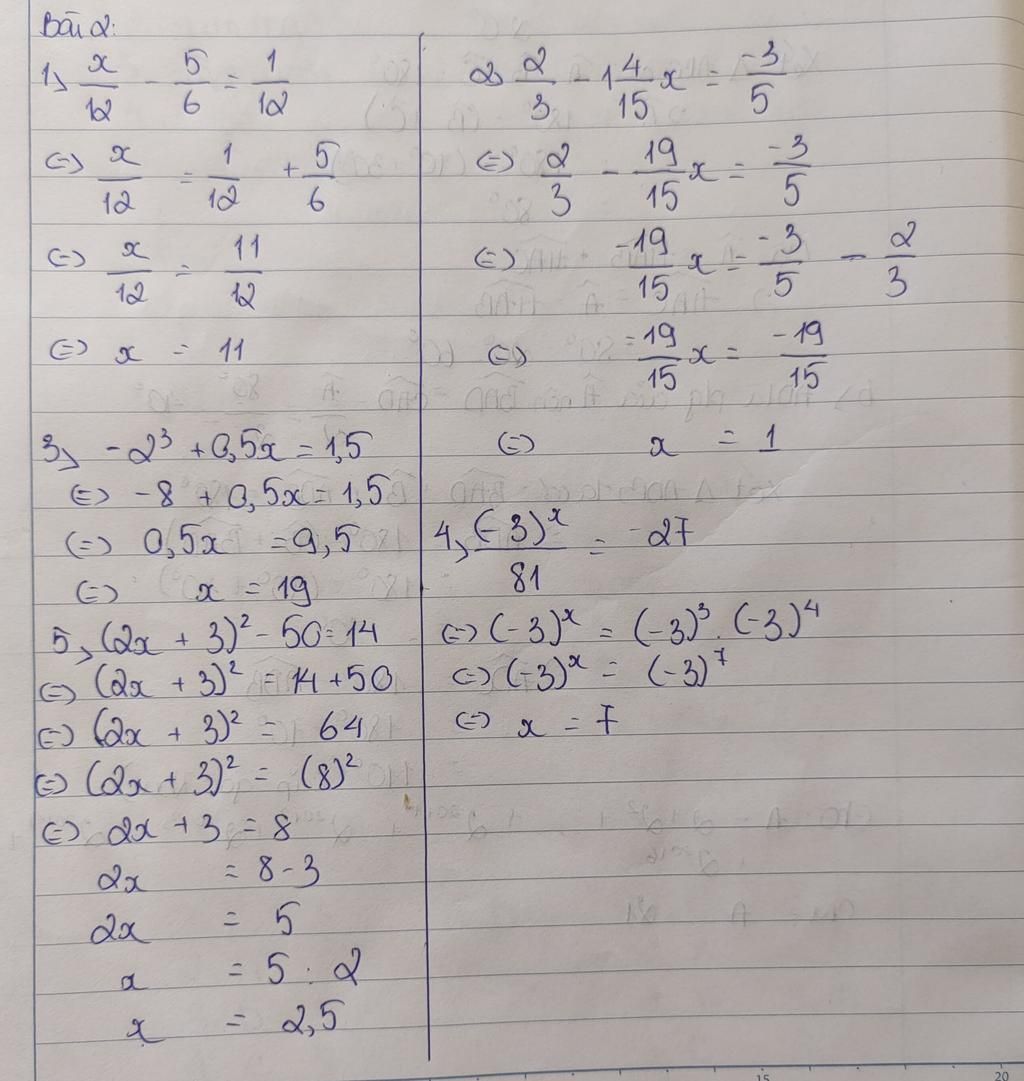 Bài 2:
1, x/12 - 5/6 = 1/12
(=) x/12 = 1/12 + 5/6
(=) x/12 = 11/12
(=) x = 11
3, -2³ + 0,5x = 1,5
(=) -8 + 0,5x = 1,5
(=) 0,5x = 9,5
(=) x = 19
5, (2x + 3)² - 50 = 14
(=) (2x + 3)² = 14 + 50
(=) (2x + 3)² = 64
(=) (2x + 3)² = (8)²
(=) 2x + 3 = 8
2x = 8 - 3
2x = 5
x = 5 : 2
x = 2,5
2, 2/3 - 1 4/15 x = -3/5
(=) 2/3 - 19/15 x = -3/5
(=) -19/15 x = -3/5 - 2/3
(=) -19/15 x = -19/15
(=) x = 1
4, (-3)ˣ/81 = -27
(=) (-3)ˣ = (-3)³ . (-3)⁴
(=) (-3)ˣ = (-3)⁷
(=) x = 7
15 20